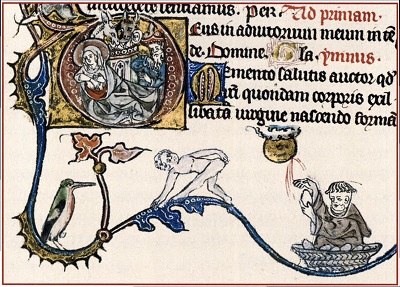 Per. Ad primam.
Deus in adiutorium meum in te
de. Domine. Gla ymnus
Memento salutis auctor qd
quondam corporis exil
libata virgine nascendo formā